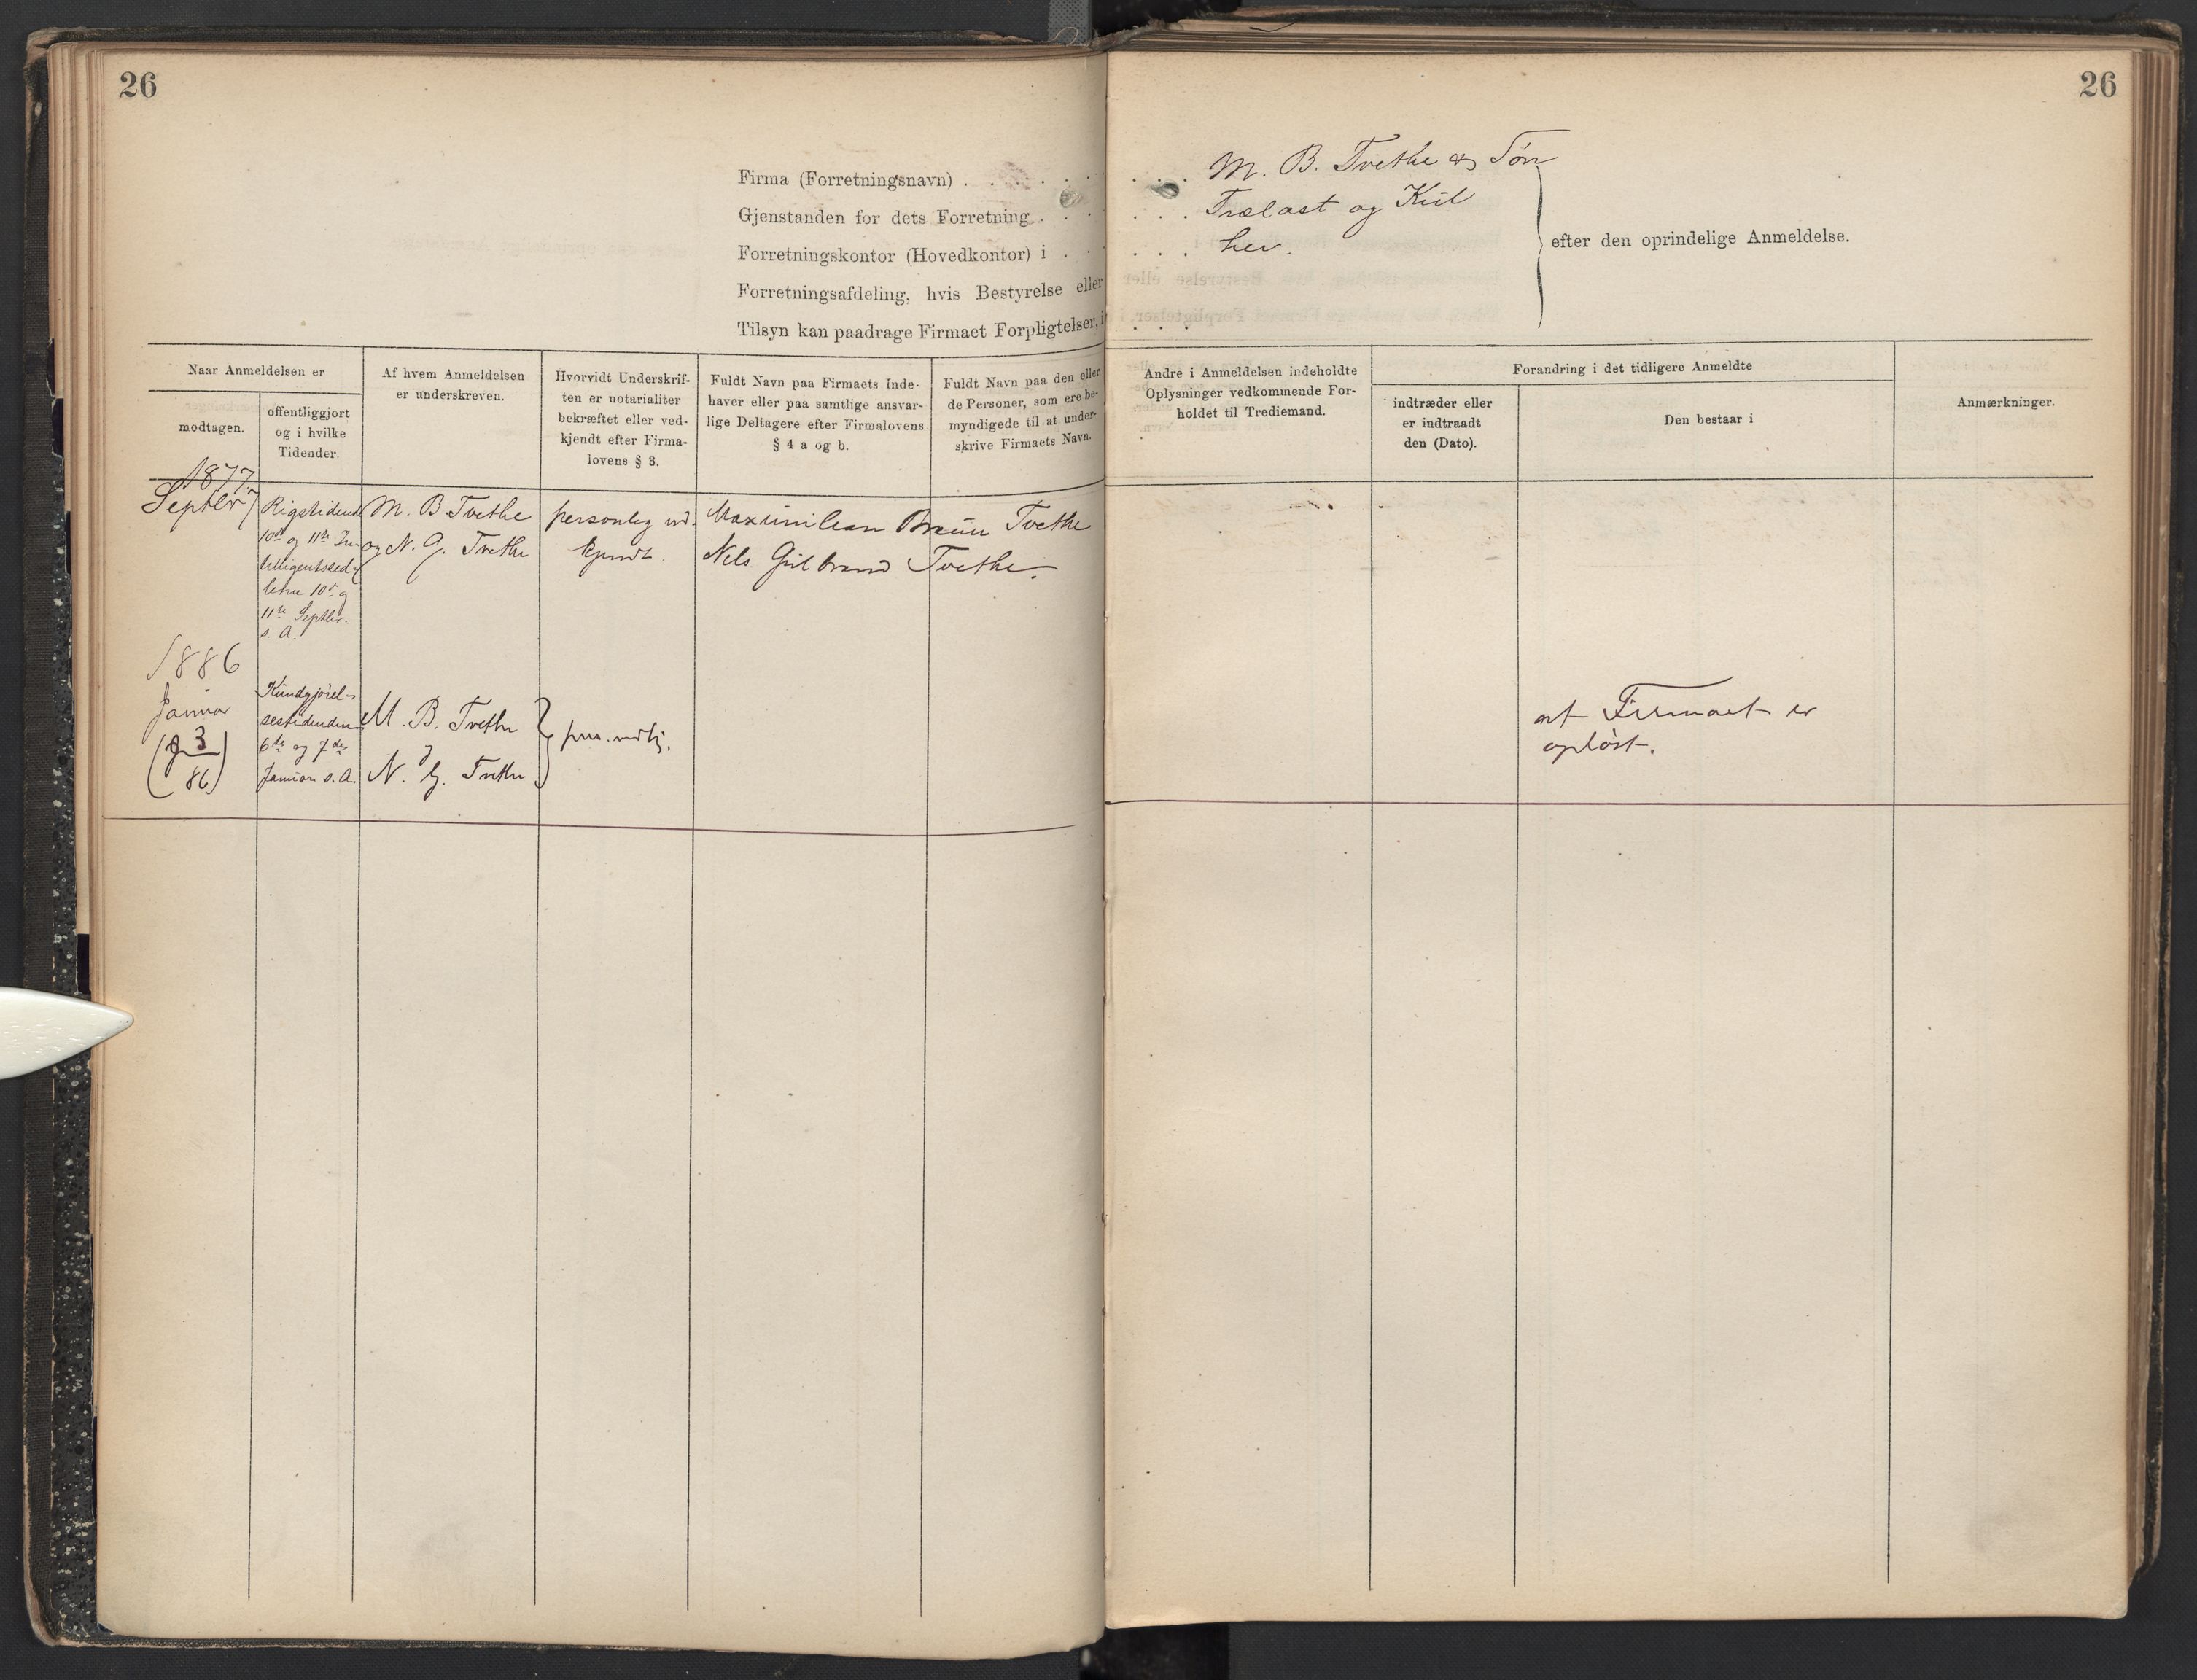 26
26
Firma (Forretningsnavn) . . . . . . . . M. B. Tvethe & Søn
Gjenstanden for dets Forretning . . . . . . Trælast og Kul
Forretningskontor (Hovedkontor) i . . . . . her.
efter den oprindelige Anmeldelse.
Forretningsafdeling, hvis Bestyrelse eller
Tilsyn kan paadrage Firmaet Forpligtelser, i . . .
Naar Anmeldelsen er
modtagen.
offentliggjort
og i hvilke
Tidender.
Af hvem Anmeldelsen
er underskreven.
Hvorvidt Underskrif-
ten er notarialiter
bekræftet eller ved-
kjendt efter Firma-
lovens § 3.
Fuldt Navn paa Firmaets Inde-
haver eller paa samtlige ansvar-
lige Deltagere efter Firmalovens
§ 4 a og b.
Fuldt Navn paa den eller
de Personer, som ere be-
myndigede til at under-
skrive Firmaets Navn.
Andre i Anmeldelsen indeholdte
Oplysninger vedkommende For-
holdet til Trediemand.
Forandring i det tidligere Anmeldte
indtræder eller
er indtraadt
den (Dato).
Den bestaar i
Anmærkninger.
1877.
Septbr 7
Rigstidende
10de og 11te In-
telligentssed-
lerne 10de og
11te Septbr.
s. A.
M. B Tvethe
og N. G. Tvethe
personlig ved-
kjendt.
Maximilian Braun Tvethe
Nils Gulbrand Tvethe.
1886
Januar
3
86
Kundgjørel-
sestidenden
6te og 7de
Januar s. A.
M. B. Tvethe
N. G. Tvethe
pers. vedkj.
at Firmaet er
opløst.